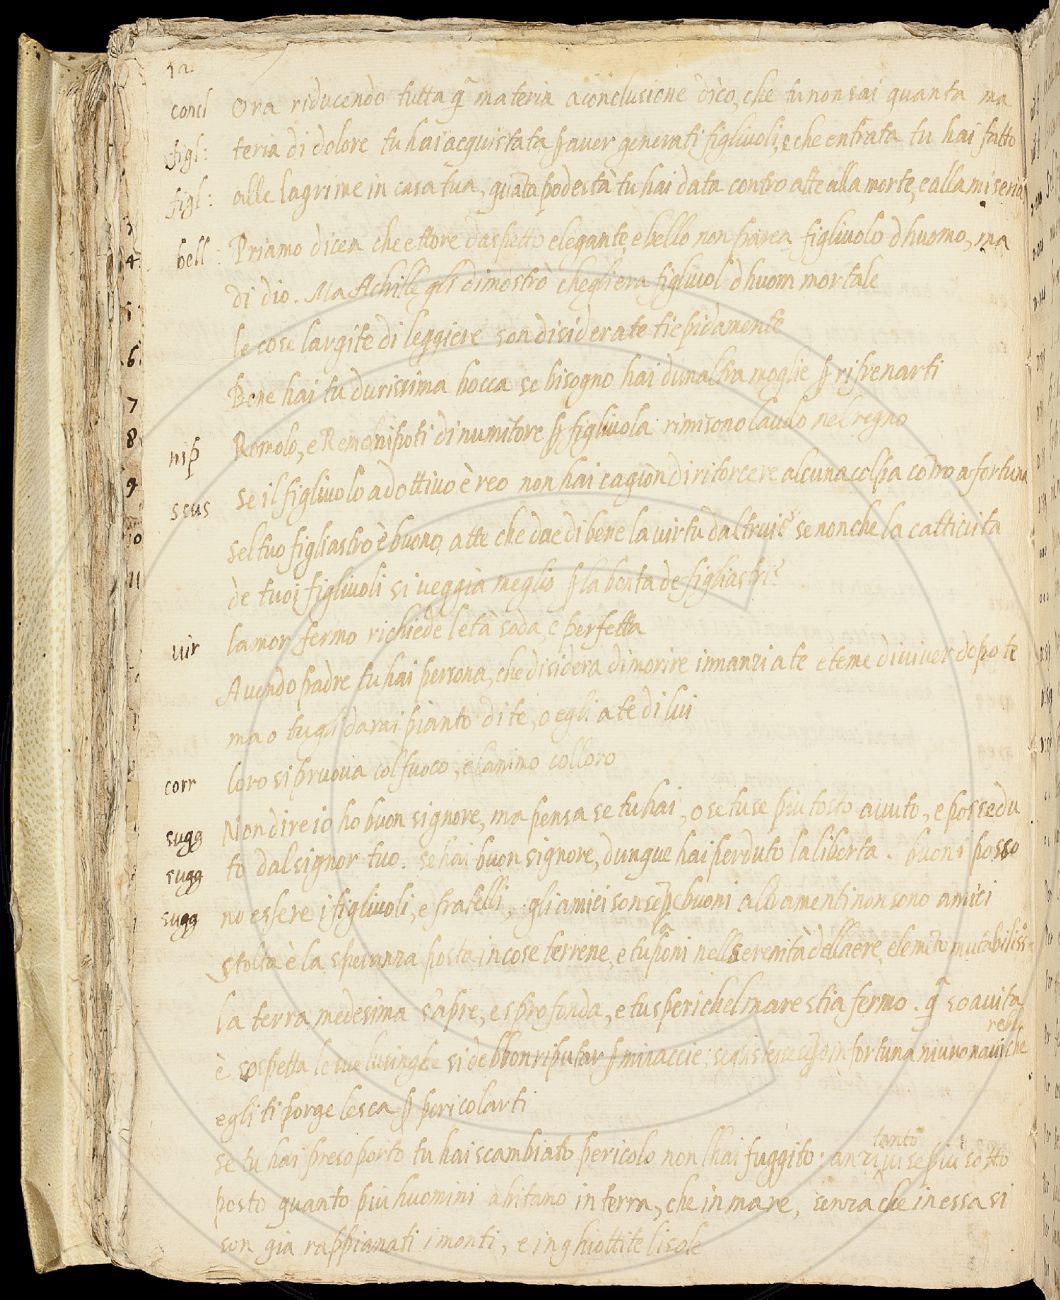 concl Ora riducendo tutta q̃ materia a conclusione dico, che tu non sai quanta ma
figl: teria di dolore tu hai acquistata ꝑ aver generati figliuoli, e che entrata tu hai fatto
figl: alle lagrime in casa tua, quãta podestà tu hai data contro atte alla morte, e alla miseria
3
4 bell: Priamo dicea che ettore daspetto elegante, e bello non parea figliuolo dhuomo, ma
di dio. Ma Achille gli dimostrò chegli era figliuol dhuom mortale
5 le cose largite di leggiere son disiderate tiepidamente
6 Bene hai tu durissima bocca se bisogno hai dunaltra moglie ꝑ rifrenarti
7
8 nip Romolo, e Remo nipoti di numitore ꝑ figliuola rimisono lavolo nel regno
9 ssus Se il figliuolo adottivo è reo non hai cagion di ritorcere alcuna colpa cõtro a fortuna
10 Sel tuo figliastro è buono, atte che dae di bene la virtù daltrui? se non che la cattivita
11 de tuoi figliuoli si veggia meglio ꝑ la bonta de figliastri?
vir lamor fermo richiede letà soda, e perfetta
Avendo padre tu hai persona, che disidera di morire innanzi a te e teme di viver dopo te
ma o tu gli darai pianto di te, o egli a te di lui
corr loro si pruova col fuoco, e lanimo colloro
sugg Non dire io ho buon signore, ma pensa se tu hai, o se tu se piu tosto avuto, e possedu
sugg to dal signor tuo. Se hai buon signore, dunque hai perduto la liberta. buoni posso
sugg no essere i figliuoli, e fratelli, gli amici son sẽpre buoni altramenti non sono amici
stolta è la speranza posta in cose terrene, e tu poni nella serenità dellaere, elemẽto mutabiliss:
la terra medesima sapre, e sprofonda, e tu speri chel mare stia fermo. q̃ soavita
è sospetta le sue lusinghe si debbon riputar ꝑ minaccie; fortuna niuno navicherebbe
egli ti porge lesca ꝑ pericolarti
se tu hai preso porto tu hai scambiato pericolo non lhai fuggito; anzi qui se tanto piu sotto
posto quanto piu huomini abitano in terra, che in mare, senza che in essa si
son gia rappianati i monti, e inghiottite lisole